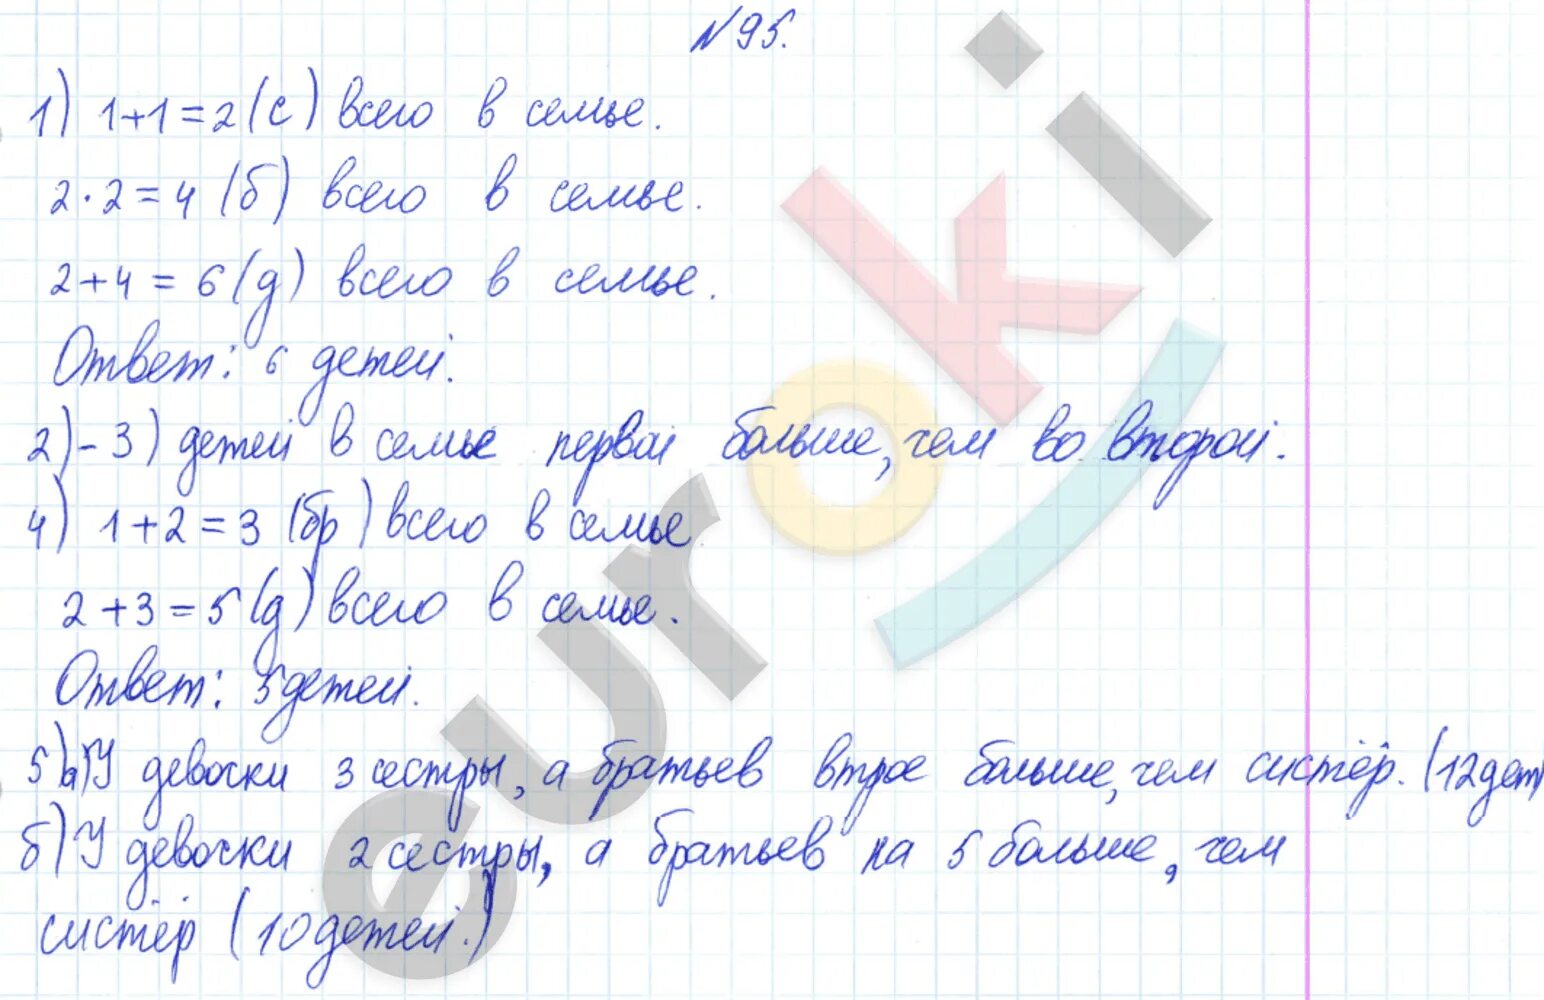 №95.
1) 1+1=2(с) всего в семье.
2·2=4 (б) всего в семье.
2+4=6(д) всего в семье.
Ответ: 6 детей.
2)-3) детей в семье первой больше, чем во второй.
4) 1+2=3 (бр) всего в семье.
2+3=5(д) всего в семье.
Ответ: 5 детей.
5) а) У девочки 3 сестры, а братьев втрое больше, чем систёр. (12 дет)
б) У девочки 2 сестры, а братьев на 5 больше, чем
систёр (10 детей.)
euroki